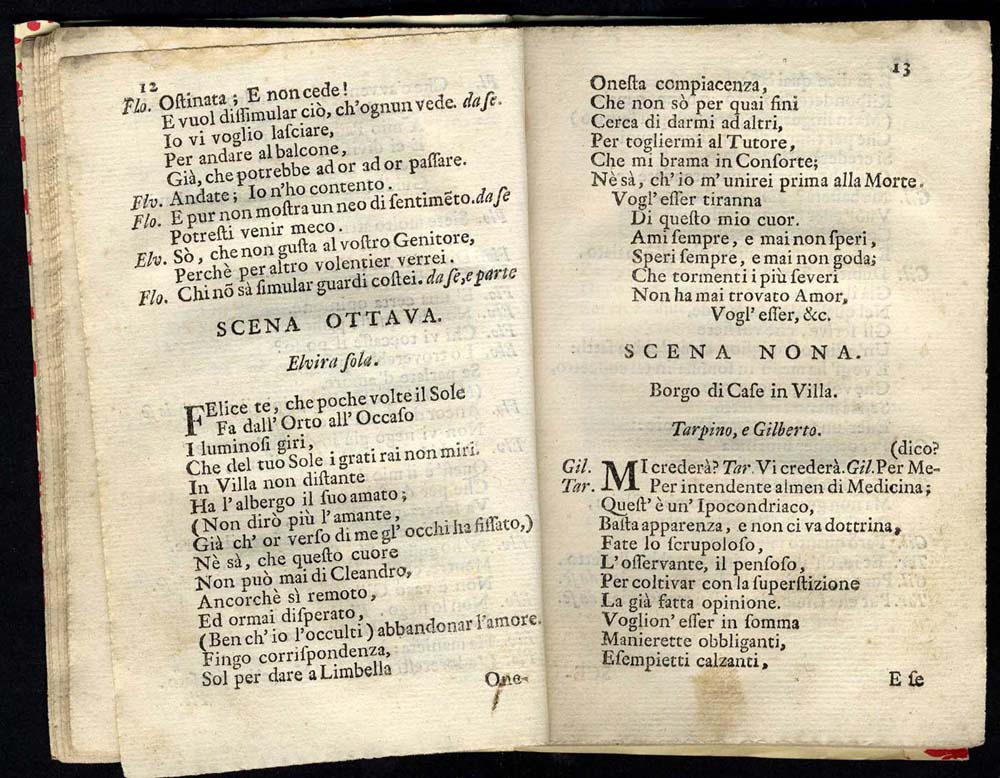 12
Flo. Oſtinata; E non cede!
E vuol diſſimular ciò, ch'ognun vede. da ſe.
Io vi voglio laſciare,
Per andare al balcone,
Già, che potrebbe ad or ad or paſſare.
Flv. Andate; Io n'ho contento.
Flo. E pur non moſtra un neo di ſentimẽto. da ſe
Potreſti venir meco.
Elv. Sò, che non guſta al voſtro Genitore,
Perchè per altro volentier verrei.
Flo. Chi nõ sà ſimular guardi coſtei. da ſe, e parte
SCENA OTTAVA.
Elvira ſola.
FElice te, che poche volte il Sole
Fa dall' Orto all' Occaſo
I luminoſi giri,
Che del tuo Sole i grati rai non miri.
In Villa non diſtante
Ha l'albergo il ſuo amato;
(Non dirò più l'amante,
Già ch' or verſo di me gl' occhi ha fiſſato,)
Nè sà, che queſto cuore
Non può mai di Cleandro,
Ancorchè sì remoto,
Ed ormai diſperato,
(Ben ch' io l'occulti) abbandonar l'amore.
Fingo corriſpondenza,
Sol per dare a Limbella
One-
13
Oneſta compiacenza,
Che non sò per quai fini
Cerca di darmi ad altri,
Per togliermi al Tutore,
Che mi brama in Conſorte;
Nè sà, ch' io m' unirei prima alla Morte.
Vogl' eſſer tiranna
Di queſto mio cuor.
Ami ſempre, e mai non ſperi,
Speri ſempre, e mai non goda;
Che tormenti i più ſeveri
Non ha mai trovato Amor,
Vogl' eſſer, &c.
SCENA NONA.
Borgo di Caſe in Villa.
Tarpino, e Gilberto.
(dico?
Gil. MI crederà? Tar. Vi crederà. Gil. Per Me-
Tar. Per intendente almen di Medicina;
Queſt' è un' Ipocondriaco,
Baſta apparenza, e non ci va dottrina,
Fate lo ſcrupoloſo,
L'oſſervante, il penſoſo,
Per coltivar con la ſuperſtizione
La già fatta opinione.
Voglion' eſſer in ſomma
Manierette obbliganti,
Eſempietti calzanti,
E ſe